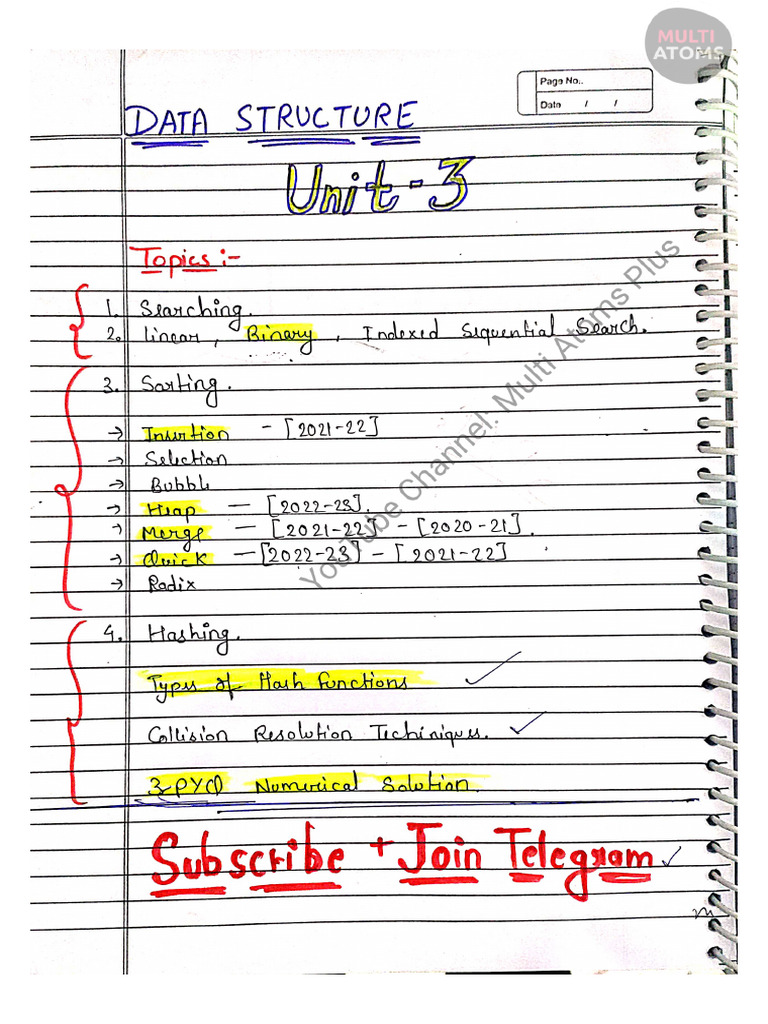 MULTI
ATOMS
Page No..
Date / /
DATA STRUCTURE
Unit-3
Topics :-
1. Searching.
2. linear, Binary, Indexed Sequential Search.
3. Sorting.
→ Insertion - [2021-22]
→ Selection
→ Bubble
→ Heap — [2022-23].
→ Merge — [2021-22] - [2020-21].
→ Quick — [2022-23] - [2021-22]
→ Radix
4. Hashing.
Types of Hash Functions ✓
Collision Resolution Techiniques. ✓
3-PYQ Numerical Solution.
Subscribe + Join Telegram ✓
YouTube Channel: Multi Atoms Plus